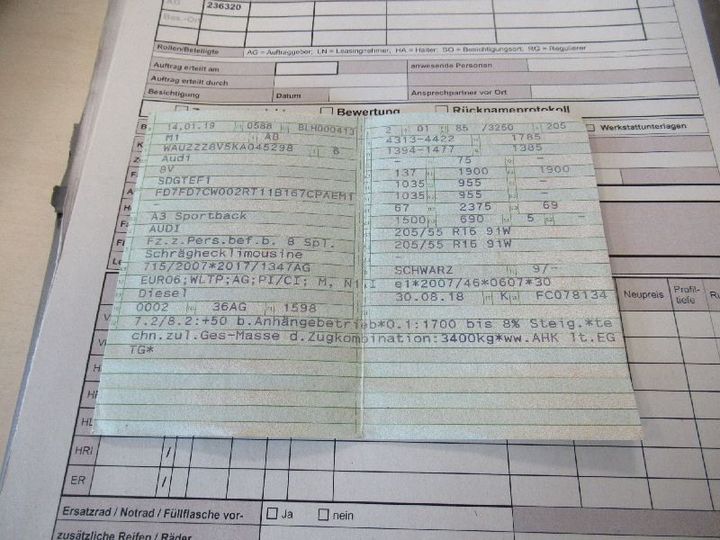 AG
236320
Bes.-Ort
Rollen/Beteiligte AG = Auftraggeber; LN = Leasingnehmer; HA = Halter; SO = Besichtigungsort; RG = Regulierer
Auftrag erteilt am anwesende Personen
Auftrag erteilt durch
Besichtigung Datum Ansprechpartner vor Ort
Bewertung Rücknahmeprotokoll
Werkstattunterlagen
14.01.19 0588 BLH000413
M1 AB
WAUZZZ8V5KA045298 6
Audi
8V
SDGTEF1
FD7FD7CW002RT11B167CPAEM1
A3 Sportback
AUDI
Fz.z.Pers.bef.b. 8 Spl.
Schräghecklimousine
715/2007*2017/1347AG
EURO6;WLTP;AG;PI/CI; M, N1 I
Diesel
0002 36AG 1598
2 01 85 /3250 205
4313-4422 1785
1394-1477 1385
- 75 -
137 1900 1900
1035 955 -
1035 955 -
67 2375 69
1500 690 5 -
205/55 R16 91W
205/55 R16 91W
-
SCHWARZ 9/-
e1*2007/46*0607*30
30.08.18 K FC078134
7.2/8.2:+50 b.Anhängebetrieb*O.1:1700 bis 8% Steig.*te
chn.zul.Ges-Masse d.Zugkombination:3400kg*ww.AHK lt.EG
TG*
Neupreis Profil-
tiefe
HRI
ER
Ersatzrad / Notrad / Füllflasche vor- Ja nein
zusätzliche Reifen / Räder